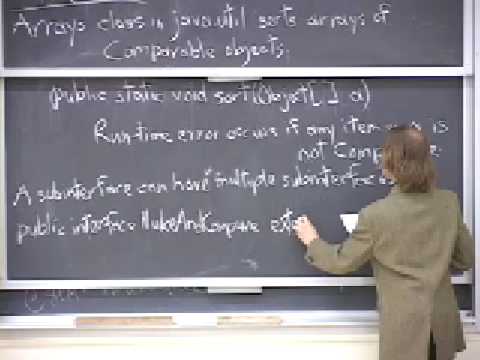 Arrays class in java.util sorts arrays of
Comparable objects:
public static void sort(Object[ ] a)
Run-time error occurs if any item is
not Comp
A subinterface can have multiple subinterfaces
public interface NukeAndCompare exte